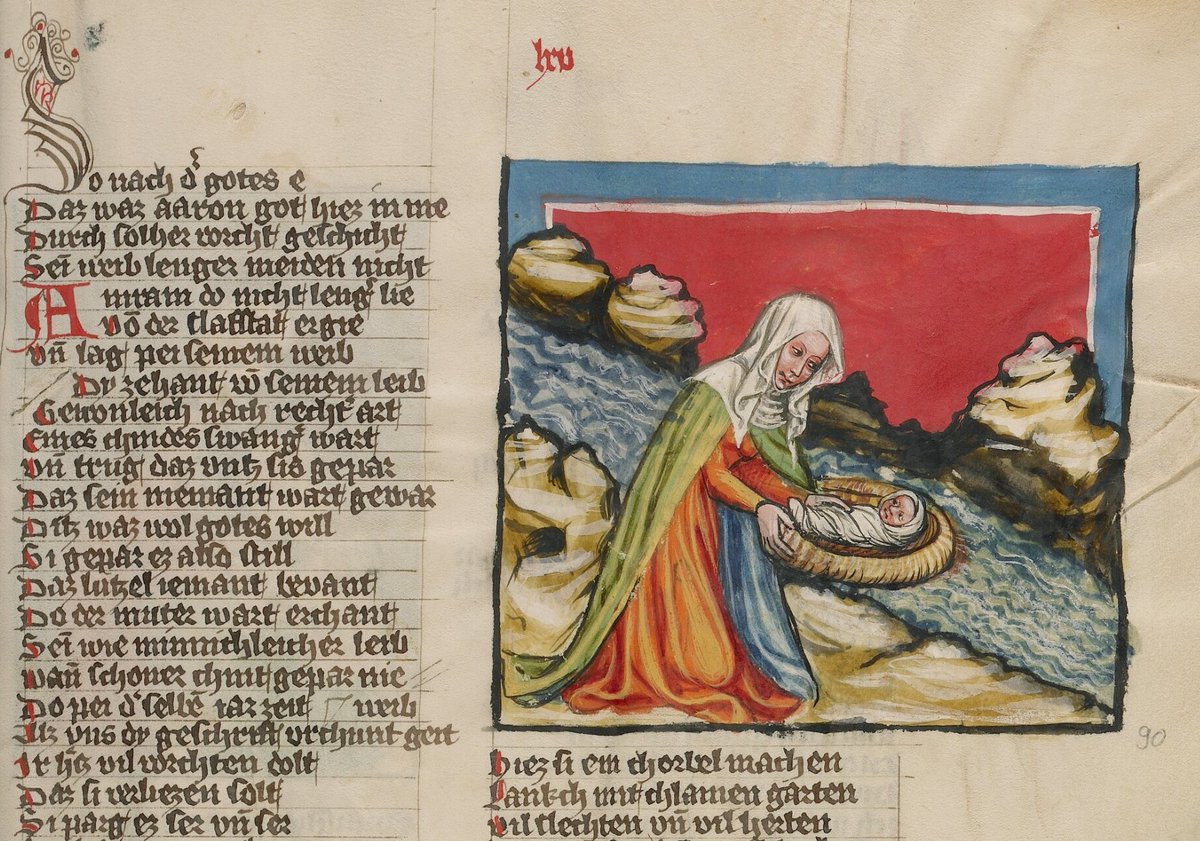 So nach d͛ gotes e
Daz waz aaron got hiez in me
Durch solher vorcht geschicht
Sei weib lenger meiden nicht
Amram do nicht leng͛ lie
Vō der chaffat ergie
Vn̄ lag pei seinem weib
Dy zehant vō seinem leib
Gewonleich nach recht͛ art
Eines chindes swang͛ wart
Vn̄ trug daz vntz sis gepar
Daz sein niemant wart gewar
Ditz waz wol gotes will
Si gepar ez also still
Daz lutzel iemant bevant
Do der muter wart erchant
Sei wie minnichleicher leib
Wan̄ schoner chint gepar nie
Do pei d͛ selbē iar zeit weib
Als vns dy geschrift vrchunt geit
Ir h͛tz vil vorchten dolt
Daz si verliezen solt
Si parg ez ser vn̄ ser
lxv
Hiez si ein chorbel machen
mit chlainen garten
Vil slechten vn̄ vil herten
90